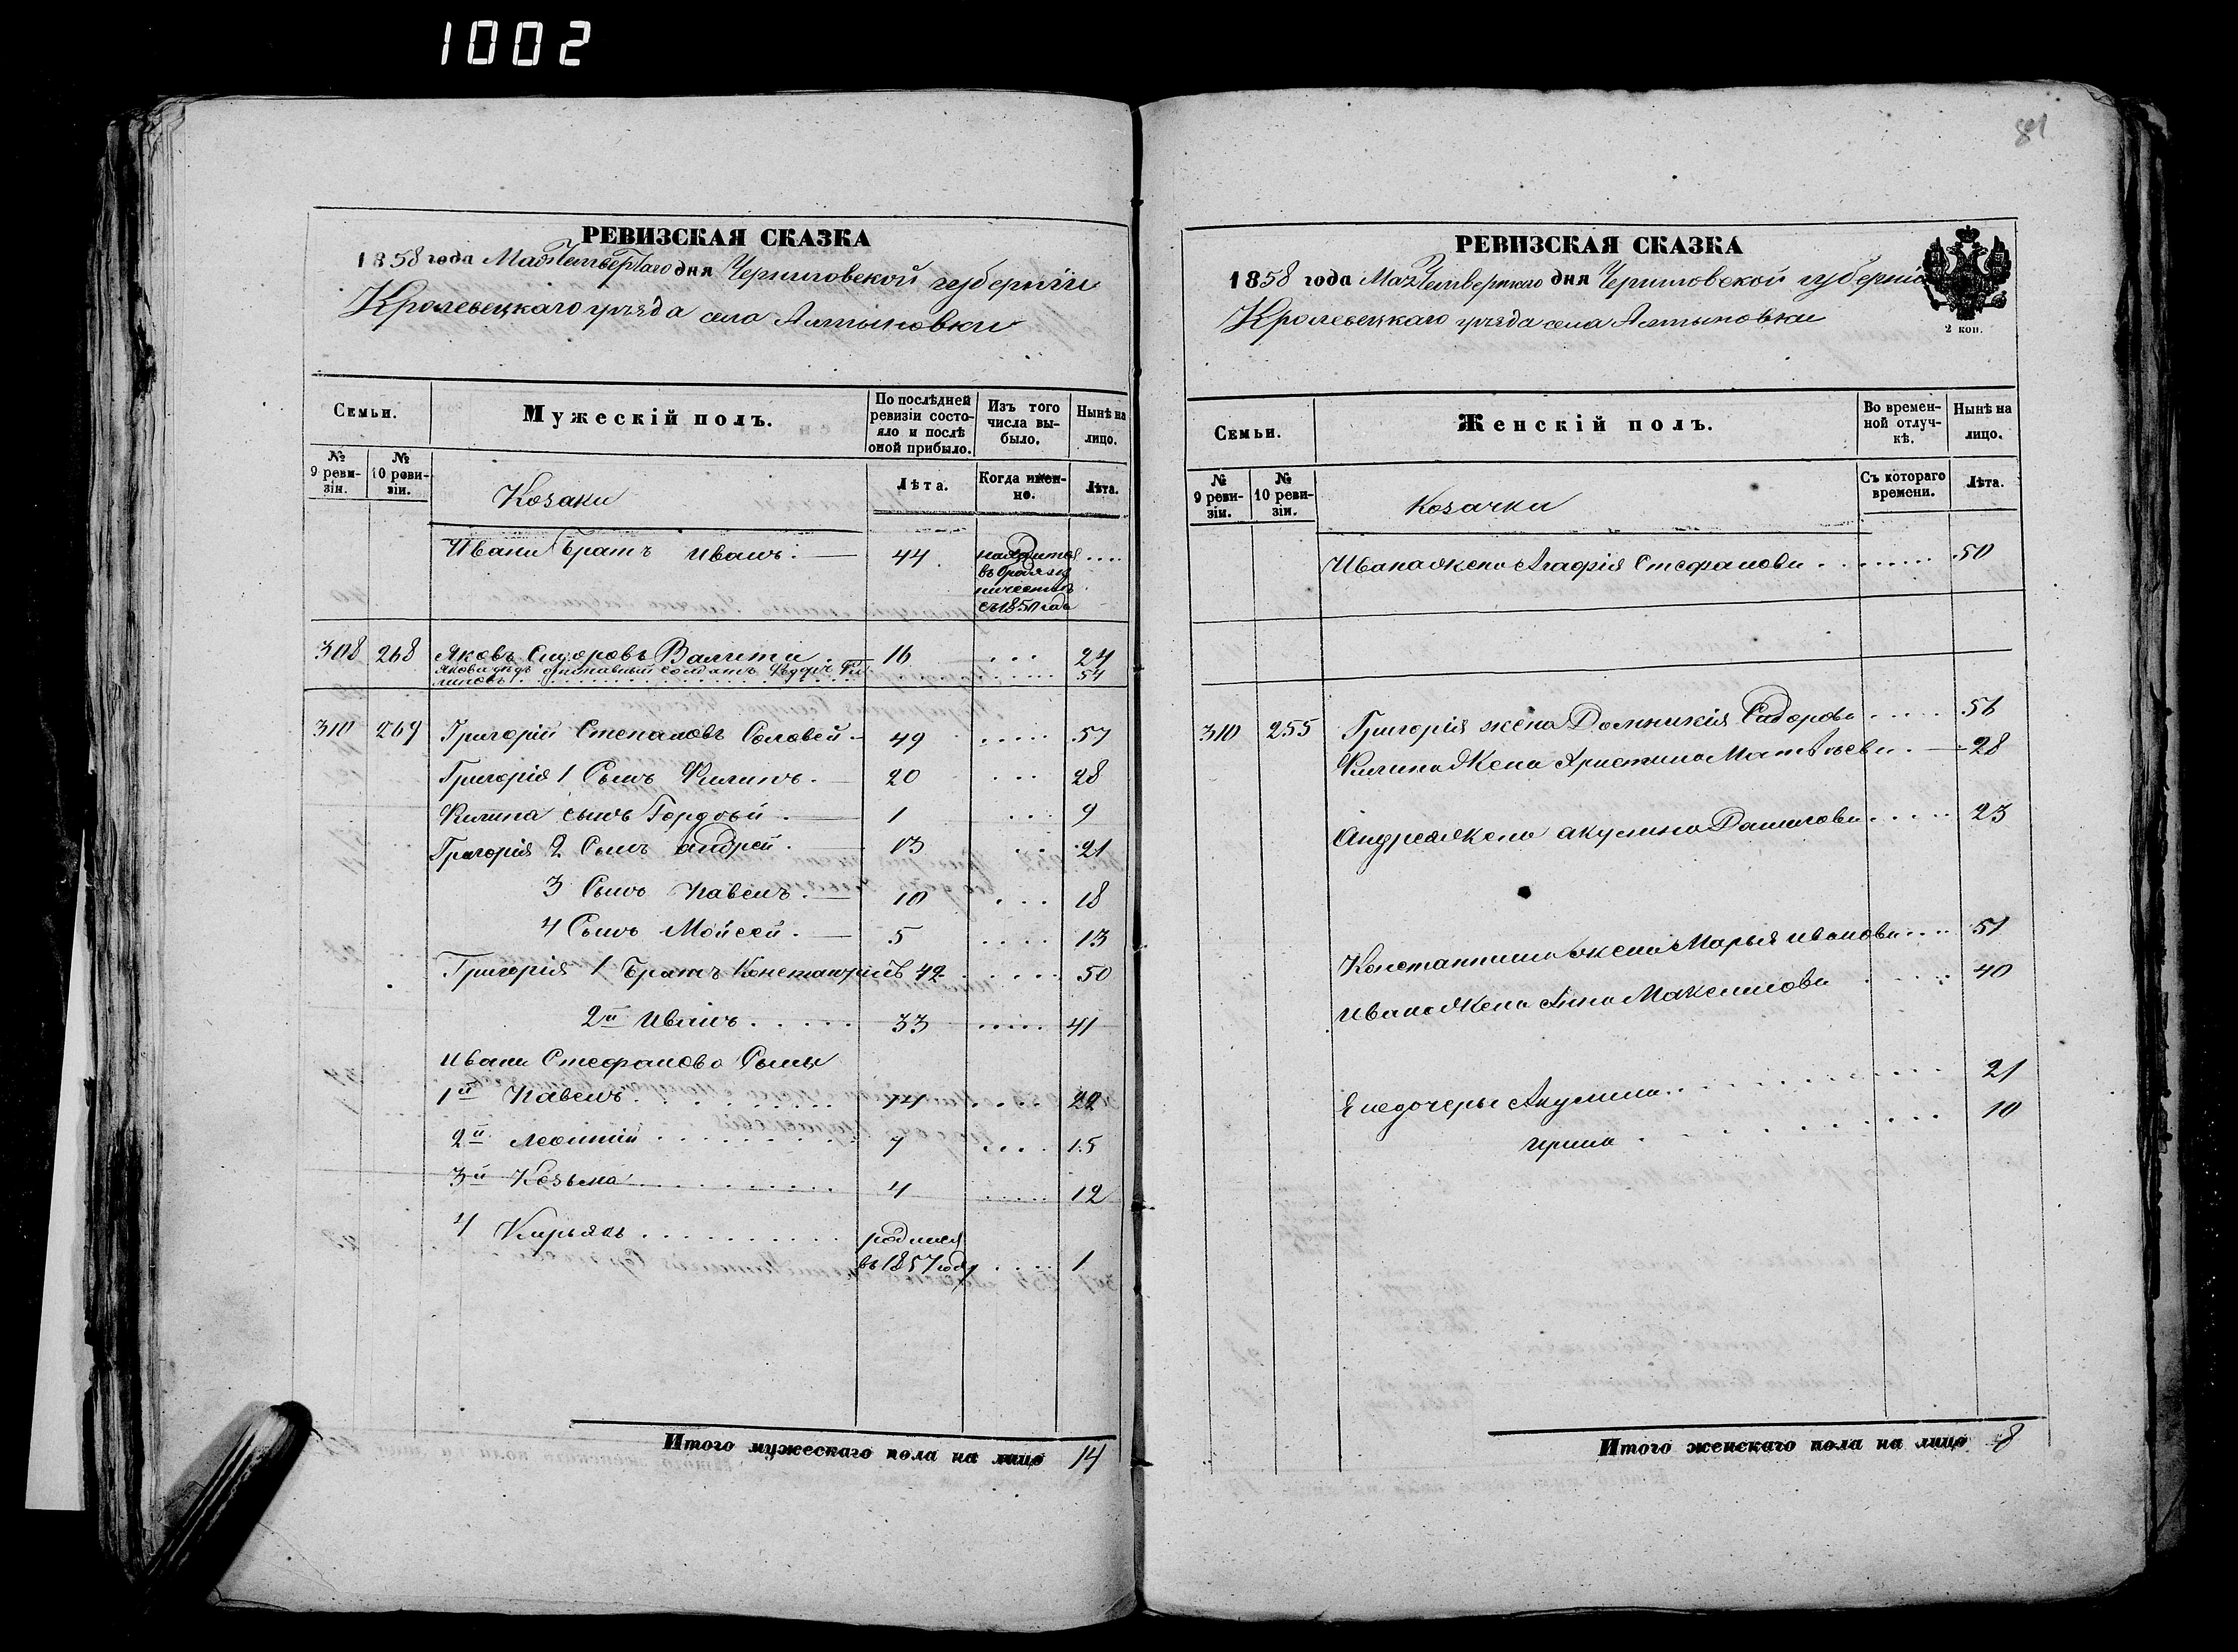 1002
81
РЕВИЗСКАЯ СКАЗКА
1858 года Мая Четвертаго дня Черниговской губернiи
Кролевецкаго уѣзда села Алтыновки
Семьи.
Мужескiй полъ.
По послѣдней ревизiи состояло и послѣ оной прибыло.
Изъ того числа выбыло.
Нынѣ на лицо.
№ 9 ревизiи.
№ 10 ревизiи.
Козаки
Лѣта.
Когда именно.
Лѣта.
Ивана братъ Иванъ. 44 находится въ с 1850 года
308 268 Яковъ Сидоровъ 16 24
Якова дядъ отставный солдатъ Федоръ Филиповъ 54
310 269 Григорiй Степановъ Соловей 49 57
Григорiя 1 Сынъ Филипъ. 20 28
Филипа сынъ Гордѣй. 1 9
Григорiя 2 Сынъ Андрей. 13 21
3 Сынъ Павелъ. 10 18
4 Сынъ Мойсей. 5 13
Григорiя 1 братъ Константинъ 42 50
2й Иванъ 33 41
Ивана Стефанова Сыны
1й Павелъ 14 22
2й Леонтiй 7 15
3й Козьма 4 12
4 Кирьякъ родился въ 1857 году 1
Итого мужескаго пола на лицо 14
РЕВИЗСКАЯ СКАЗКА
1858 года Мая Четвертаго дня Черниговской губернiи
Кролевецкаго уѣзда села Алтыновки
2 коп.
Семьи.
Женскiй полъ.
Во временной отлучкѣ.
Нынѣ на лицо.
№ 9 ревизiи.
№ 10 ревизiи.
Козачки
Съ котораго времени.
Лѣта.
Ивана жена Агафiя Стефанова 50
310 255 Григорiя жена Домникiя Сидорова 56
Филипа Жена Христина Матвѣева 28
Андрея жена Акулина Данилова 23
Константина жена Марья Иванова 51
Ивана Жена Анна Максимова 40
Ея дочерье Акулина 21
Ирина 10
Итого женскаго пола на лицо 8